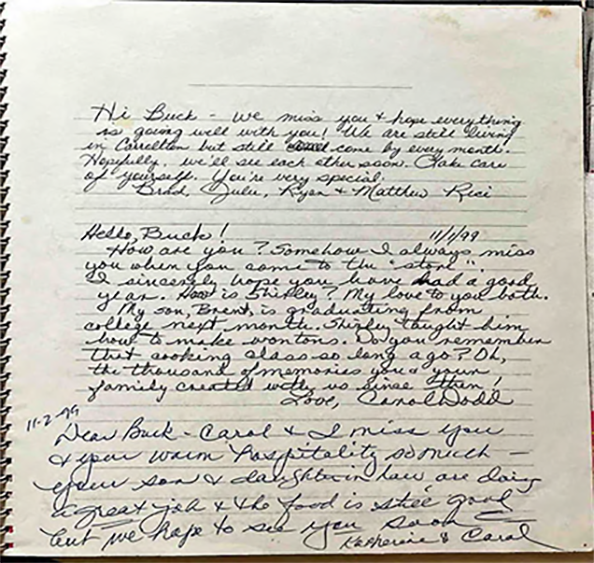 Hi Buck - we miss you & hope everything
is going well with you! We are still living
in Carrollton but still come by every month.
Hopefully, we'll see each other soon. Take care
of yourself. You're very special.
Brad, Julie, Ryan & Matthew Rici
Hello, Buck! 11/1/99
How are you? Somehow I always miss
you when you come to the "store".
I sincerely hope you have had a good
year. How is Shirley? My love to you both.
My son, Brent, is graduating from
college next month. Shirley taught him
how to make wontons. Do you remember
that cooking class so long ago? Oh,
the thousand of memories you & your
family created with us since then!
Love, Carol Dodd
11-2-99
Dear Buck - Carol & I miss you
& your warm hospitality so much -
your son & daughter in law are doing
a great job & the food is still good
but we hope to see you soon
Katherine & Carol